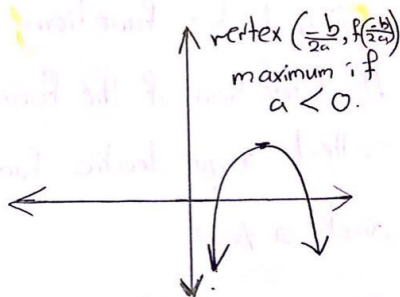 vertex (-b/2a, f(-b/2a))
maximum if
a < 0.